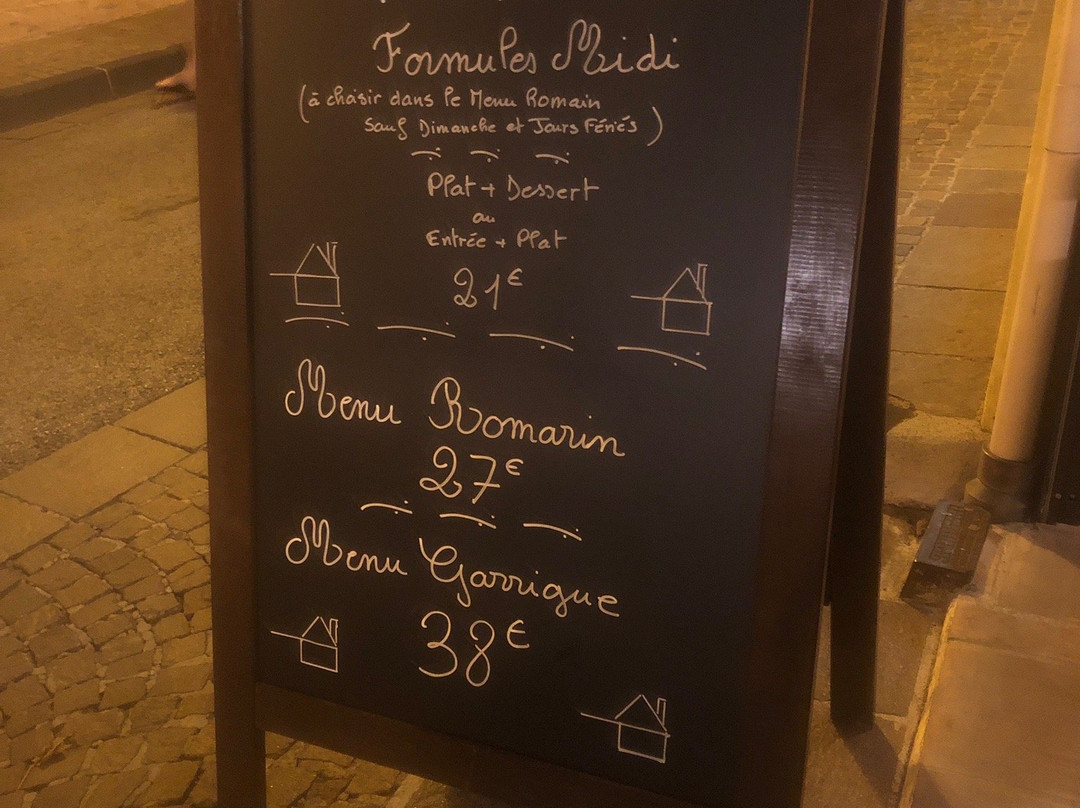 Formules Midi
(à choisir dans le Menu Romain
Sauf Dimanche et Jours Fériés)
Plat + Dessert
ou
Entrée + Plat
21€
Menu Romarin
27€
Menu Garrigue
38€